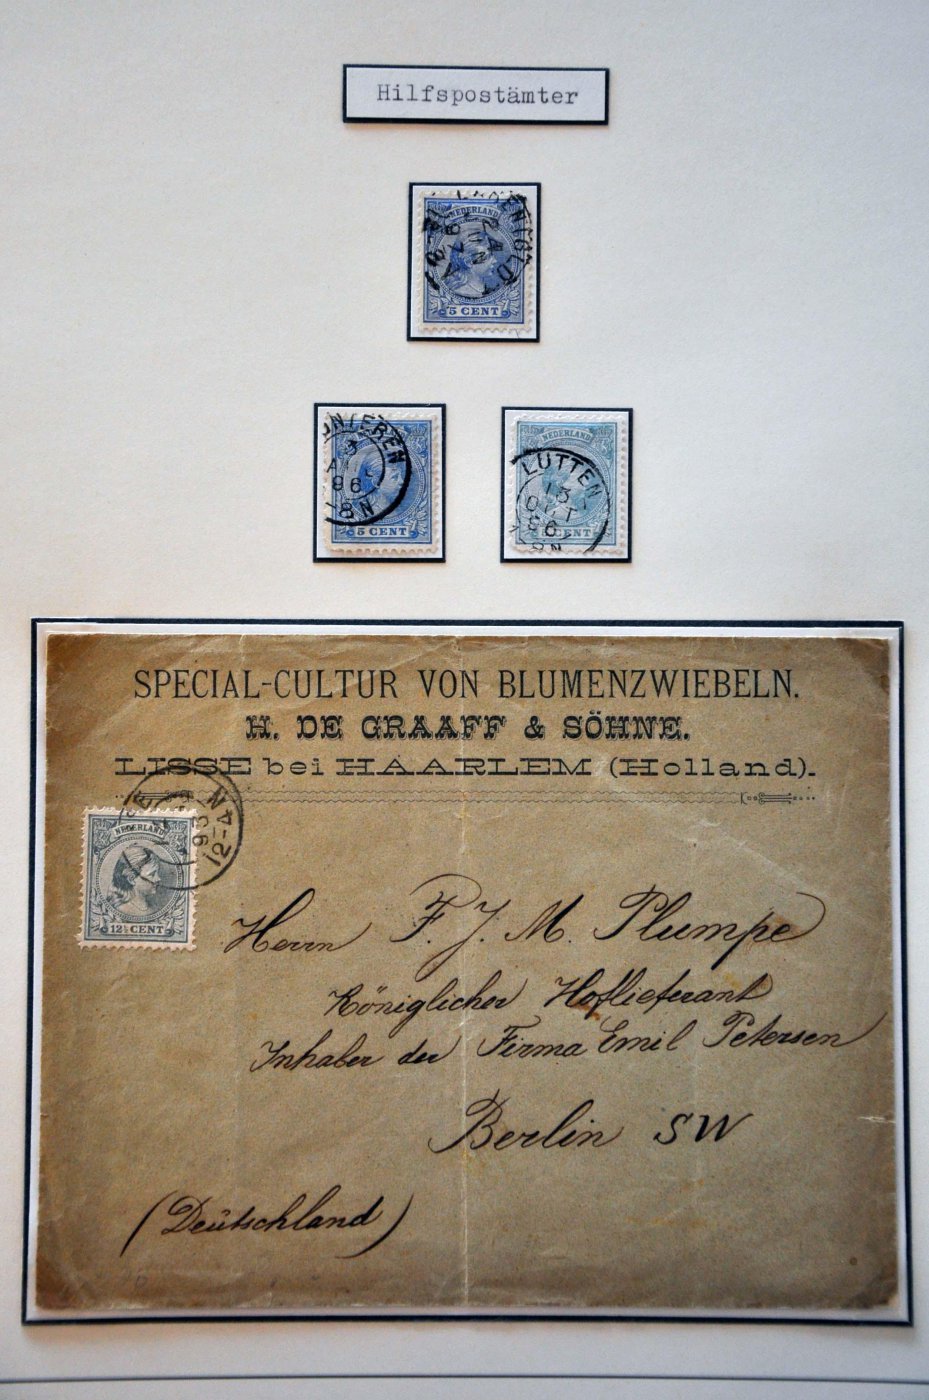 Hilfspostämter
NEDERLAND
5 CENT
5 CENT
3
96
8N
NEDERLAND
LUTTEN
13
OCT
96
CENT
SPECIAL-CULTUR VON BLUMENZWIEBELN.
H. DE GRAAFF & SÖHNE.
LISSE bei HAARLEM (Holland).
93
12-4N
NEDERLAND
12½ CENT
Herrn F. J. M. Plumpe
Königlicher Hoflieferant
Inhaber der Firma Emil Petersen
Berlin SW
(Deutschland)